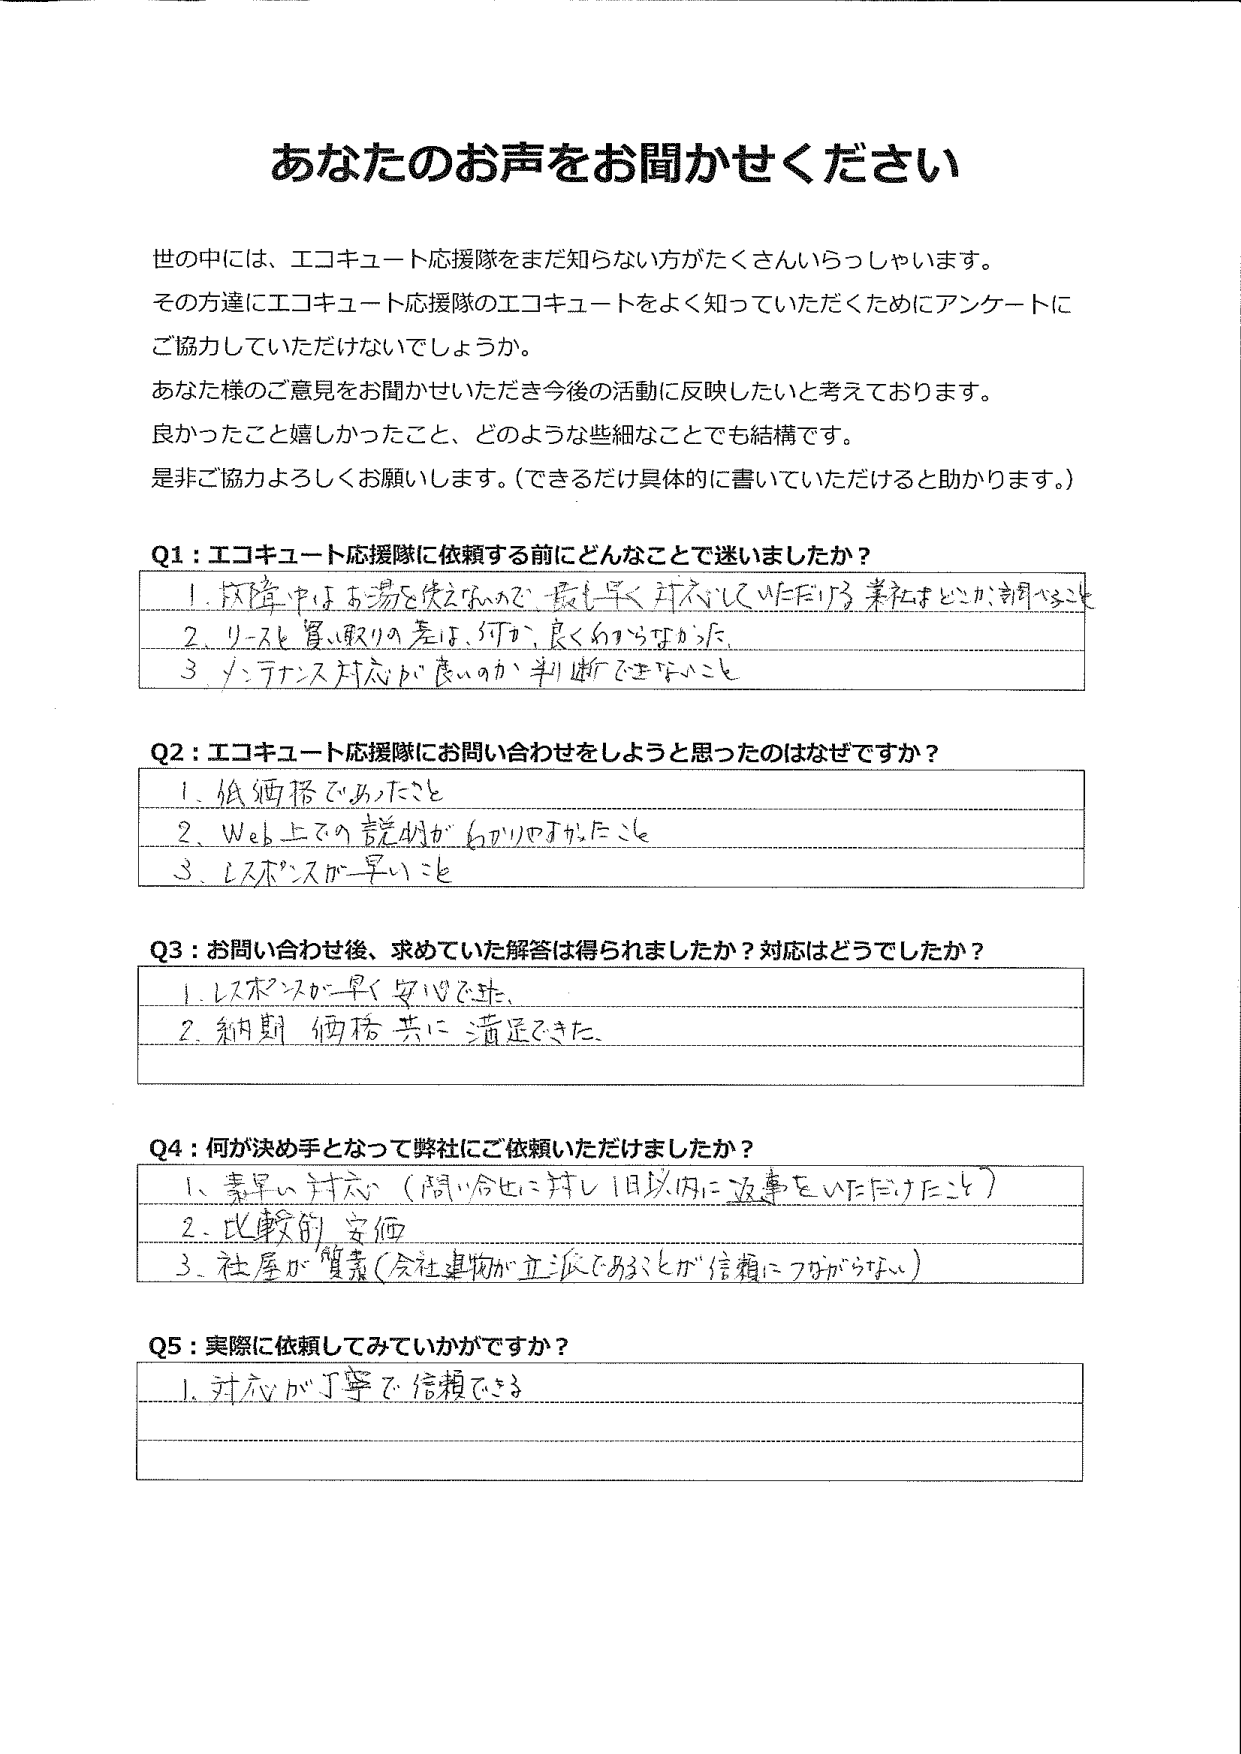 あなたのお声をお聞かせください
世の中には、エコキュート応援隊をまだ知らない方がたくさんいらっしゃいます。
その方達にエコキュート応援隊のエコキュートをよく知っていただくためにアンケートに
ご協力していただけないでしょうか。
あなた様のご意見をお聞かせいただき今後の活動に反映したいと考えております。
良かったこと嬉しかったこと、どのような些細なことでも結構です。
是非ご協力よろしくお願いします。（できるだけ具体的に書いていただけると助かります。）
Q1：エコキュート応援隊に依頼する前にどんなことで迷いましたか？
1. 故障中はお湯を使えないので、最も早く対応していただける業社はどこか、調べること
2. リースと買い取りの差は、何か、良くわからなかった。
3. メンテナンス対応が良いのか判断できないこと
Q2：エコキュート応援隊にお問い合わせをしようと思ったのはなぜですか？
1. 低価格であったこと
2. Web上での説明がわかりやすかったこと
3. レスポンスが早いこと
Q3：お問い合わせ後、求めていた解答は得られましたか？対応はどうでしたか？
1. レスポンスが早く安心できた。
2. 納期 価格 共に 満足できた。
Q4：何が決め手となって弊社にご依頼いただけましたか？
1. 素早い対応（問い合せに対し1日以内に返事をいただけたこと）
2. 比較的 安価
3. 社屋が質素（会社建物が立派であることが信頼につながらない）
Q5：実際に依頼してみていかがですか？
1. 対応が丁寧で信頼できる